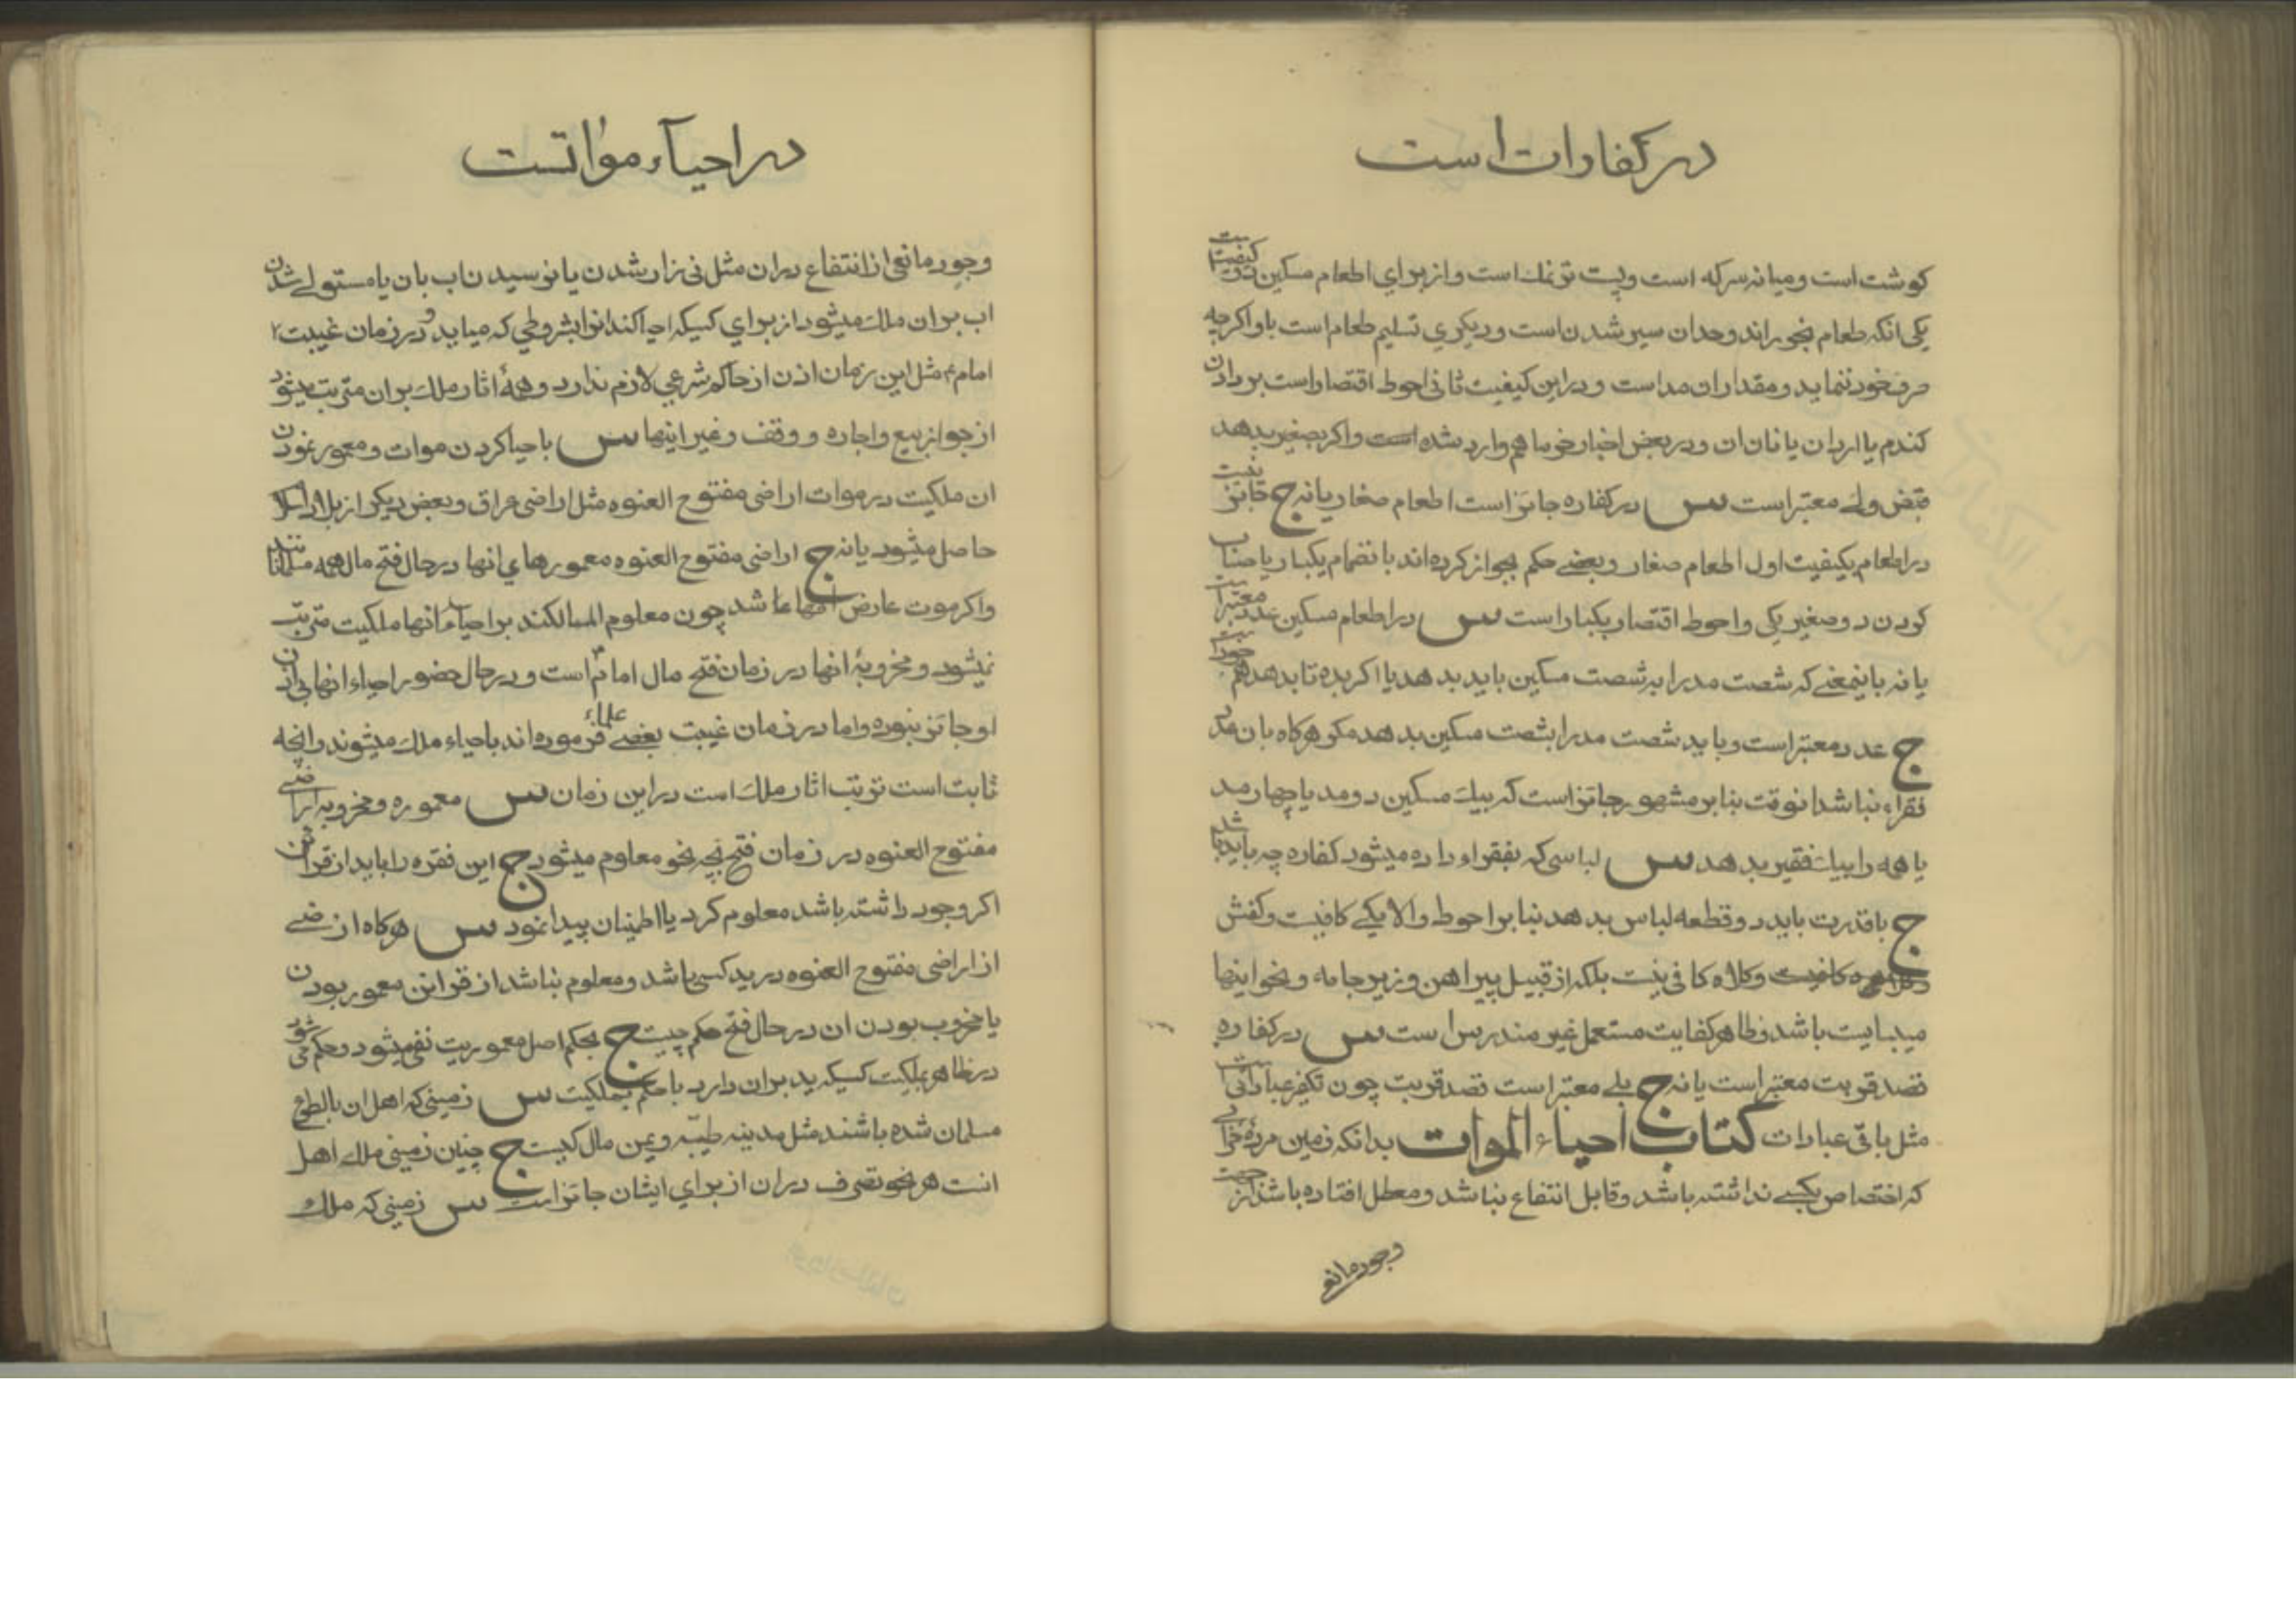 در کفارات است
کوشت است و میانه سرکه است و پست تر نمك است و از برای اطعام مسکین دو کیفیت است
یکی انکه طعام بخوراند و حد ان سیر شدن است و دیکری تسلیم طعام است باو اکر چه
صرف خود ننماید و مقدار ان مد است و در این کیفیت ثانی احوط اقتصار است بر دادن
کندم یا ارد ان یا نان ان و در بعض اخبار خرما هم وارد شده است و اکر بصغیر بدهد
قبض ولی معتبر است س در کفاره جائز است اطعام صغار یا نه ج جائز نیست
در اطعام بکیفیت اول اطعام صغار و بعضی حکم بجواز کرده اند بانضمام بکبار یا حساب
کردن دو صغیر یکی و احوط اقتصار بکبار است س در اطعام مسکین عدد معتبر است
یا نه باینمعنی که شصت مد را به شصت مسکین باید بدهد یا اکر بده تا بدهد هم
ج عدد معتبر است و باید شصت مد را بشصت مسکین بدهد مکر هرکاه بان عدد
فقراء نباشد انوقت بنابر مشهور جائز است که بیك مسکین دو مد یا چهار مد
یا همه را بیك فقیر بدهد س لباسی که بفقراء داده میشود کفاره چه باید باشد
ج با قدرت باید دو قطعه لباس بدهد بنابر احوط و الا یکی کافیست و کفش
و کلاه کافی نیست بلکه از قبیل پیراهن و زیر جامه و نحو اینها
میبایست باشد و ظاهر کفایت مستعمل غیر مندرس است س در کفاره
قصد قربت معتبر است یا نه ج بلی معتبر است قصد قربت چون تکفیر عبادتی است
مثل باقی عبادات کتاب احیاء الموات بدانکه زمین مرده
که اختصاص بکسی نداشته باشد و قابل انتفاع نباشد و معطل افتاده باشد از جهت
وجود مانع
در احیاء مواتست
وجود مانعی از انتفاع در ان مثل نی زار شدن یا نرسیدن اب بان یا مستولی شدن
اب بر ان ملك میشود از برای کسیکه احیا کند انرا بشروطی که میاید و در زمان غیبت
امام مثل این زمان اذن از حاکم شرعی لازم ندارد و همهٔ اثار ملك بر ان مترتب میشود
از جواز بیع و اجاره و وقف و غیر اینها س باحیا کردن موات و معمور نمودن
ان ملکیت در موات اراضی مفتوح العنوه مثل اراضی عراق و بعض دیکر از بلاد اسلام
حاصل میشود یا نه ج اراضی مفتوح العنوه معمورهای انها در حال فتح مال همه مسلمانانند
و اکر موت عارض انها شد چون معلوم المالکند بر احیاء انها ملکیت مترتب
نمیشود و مخروبهٔ انها در زمان فتح مال امام است و در حال حضور احیاء انها بی اذن
او جائز نبوده و اما در زمان غیبت بعضی علماء فرموده اند باحیاء ملك میشوند و انچه
ثابت است ترتب اثار ملك است در این زمان س معموره و مخروبه اراضی
مفتوح العنوه در زمان فتح بچه نحو معلوم میشود ج این فقره را باید از قرائن
اکر وجود داشته باشد معلوم کرد یا اطمینان پیدا نمود س هرکاه ارضی
از اراضی مفتوح العنوه در ید کسی باشد و معلوم نباشد از قرائن معمور بودن
یا مخروب بودن ان در حال فتح حکم چیست ج بحکم اصل معموریت نفی میشود و حکم می شود
در ظاهر بملکیت کسیکه ید بر ان دارد س زمینی که اهل ان بالطوع
مسلمان شده باشند مثل مدینه طیبّه و یمن مال کیست ج چنین زمینی ملك اهل
انست هر نحو تصرف در ان از برای ایشان جائز است س زمینی که ملك